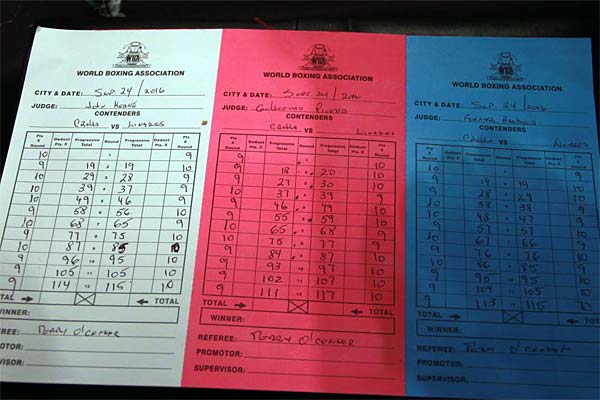 WORLD BOXING ASSOCIATION
CITY & DATE: Sep. 24 / 2016
JUDGE: John
CONTENDERS
Crolla VS Linares
Pts X Round Deduct Pts. X Progressive Total Round Progressive Total Deduct Pts. X Pts X Round
10 9
9 19 19 10
10 29 28 9
10 39 37 9
10 49 46 9
9 58 56 10
10 68 65 9
9 77 75 10
10 87 85 10
9 96 95 10
9 105 105 10
9 114 115 10
TOTAL TOTAL
WINNER:
EREE: Terry O'Connor
MOTOR:
RVISOR:
WORLD BOXING ASSOCIATION
CITY & DATE: Sep. 24 / 2016
JUDGE: Guillermo
CONTENDERS
Crolla VS Linares
Pts X Round Deduct Pts. X Progressive Total Round Progressive Total Deduct Pts. X Pts X Round
9 10
9 18 20 10
9 27 30 10
10 37 39 9
9 46 49 10
9 55 59 10
10 65 68 9
10 75 77 9
9 84 87 10
9 93 97 10
9 102 107 10
9 111 117 10
TOTAL TOTAL
WINNER:
REFEREE: Terry O'Connor
PROMOTOR:
SUPERVISOR:
WORLD BOXING ASSOCIATION
CITY & DATE: Sep. 24 / 2016
JUDGE:
CONTENDERS
Crolla VS Linares
Pts X Round Deduct Pts. X Progressive Total Round Progressive Total Deduct Pts. X Pts X Round
10 9
9 19 19 10
9 28 29 10
10 38 38 9
10 48 47 9
9 57 57 10
10 67 66 9
9 76 76 10
10 86 85 9
9 95 95 10
9 104 105 10
9 113 115 10
TOTAL TOTAL
WINNER:
REFEREE: Terry O'Connor
PROMOTOR:
SUPERVISOR: